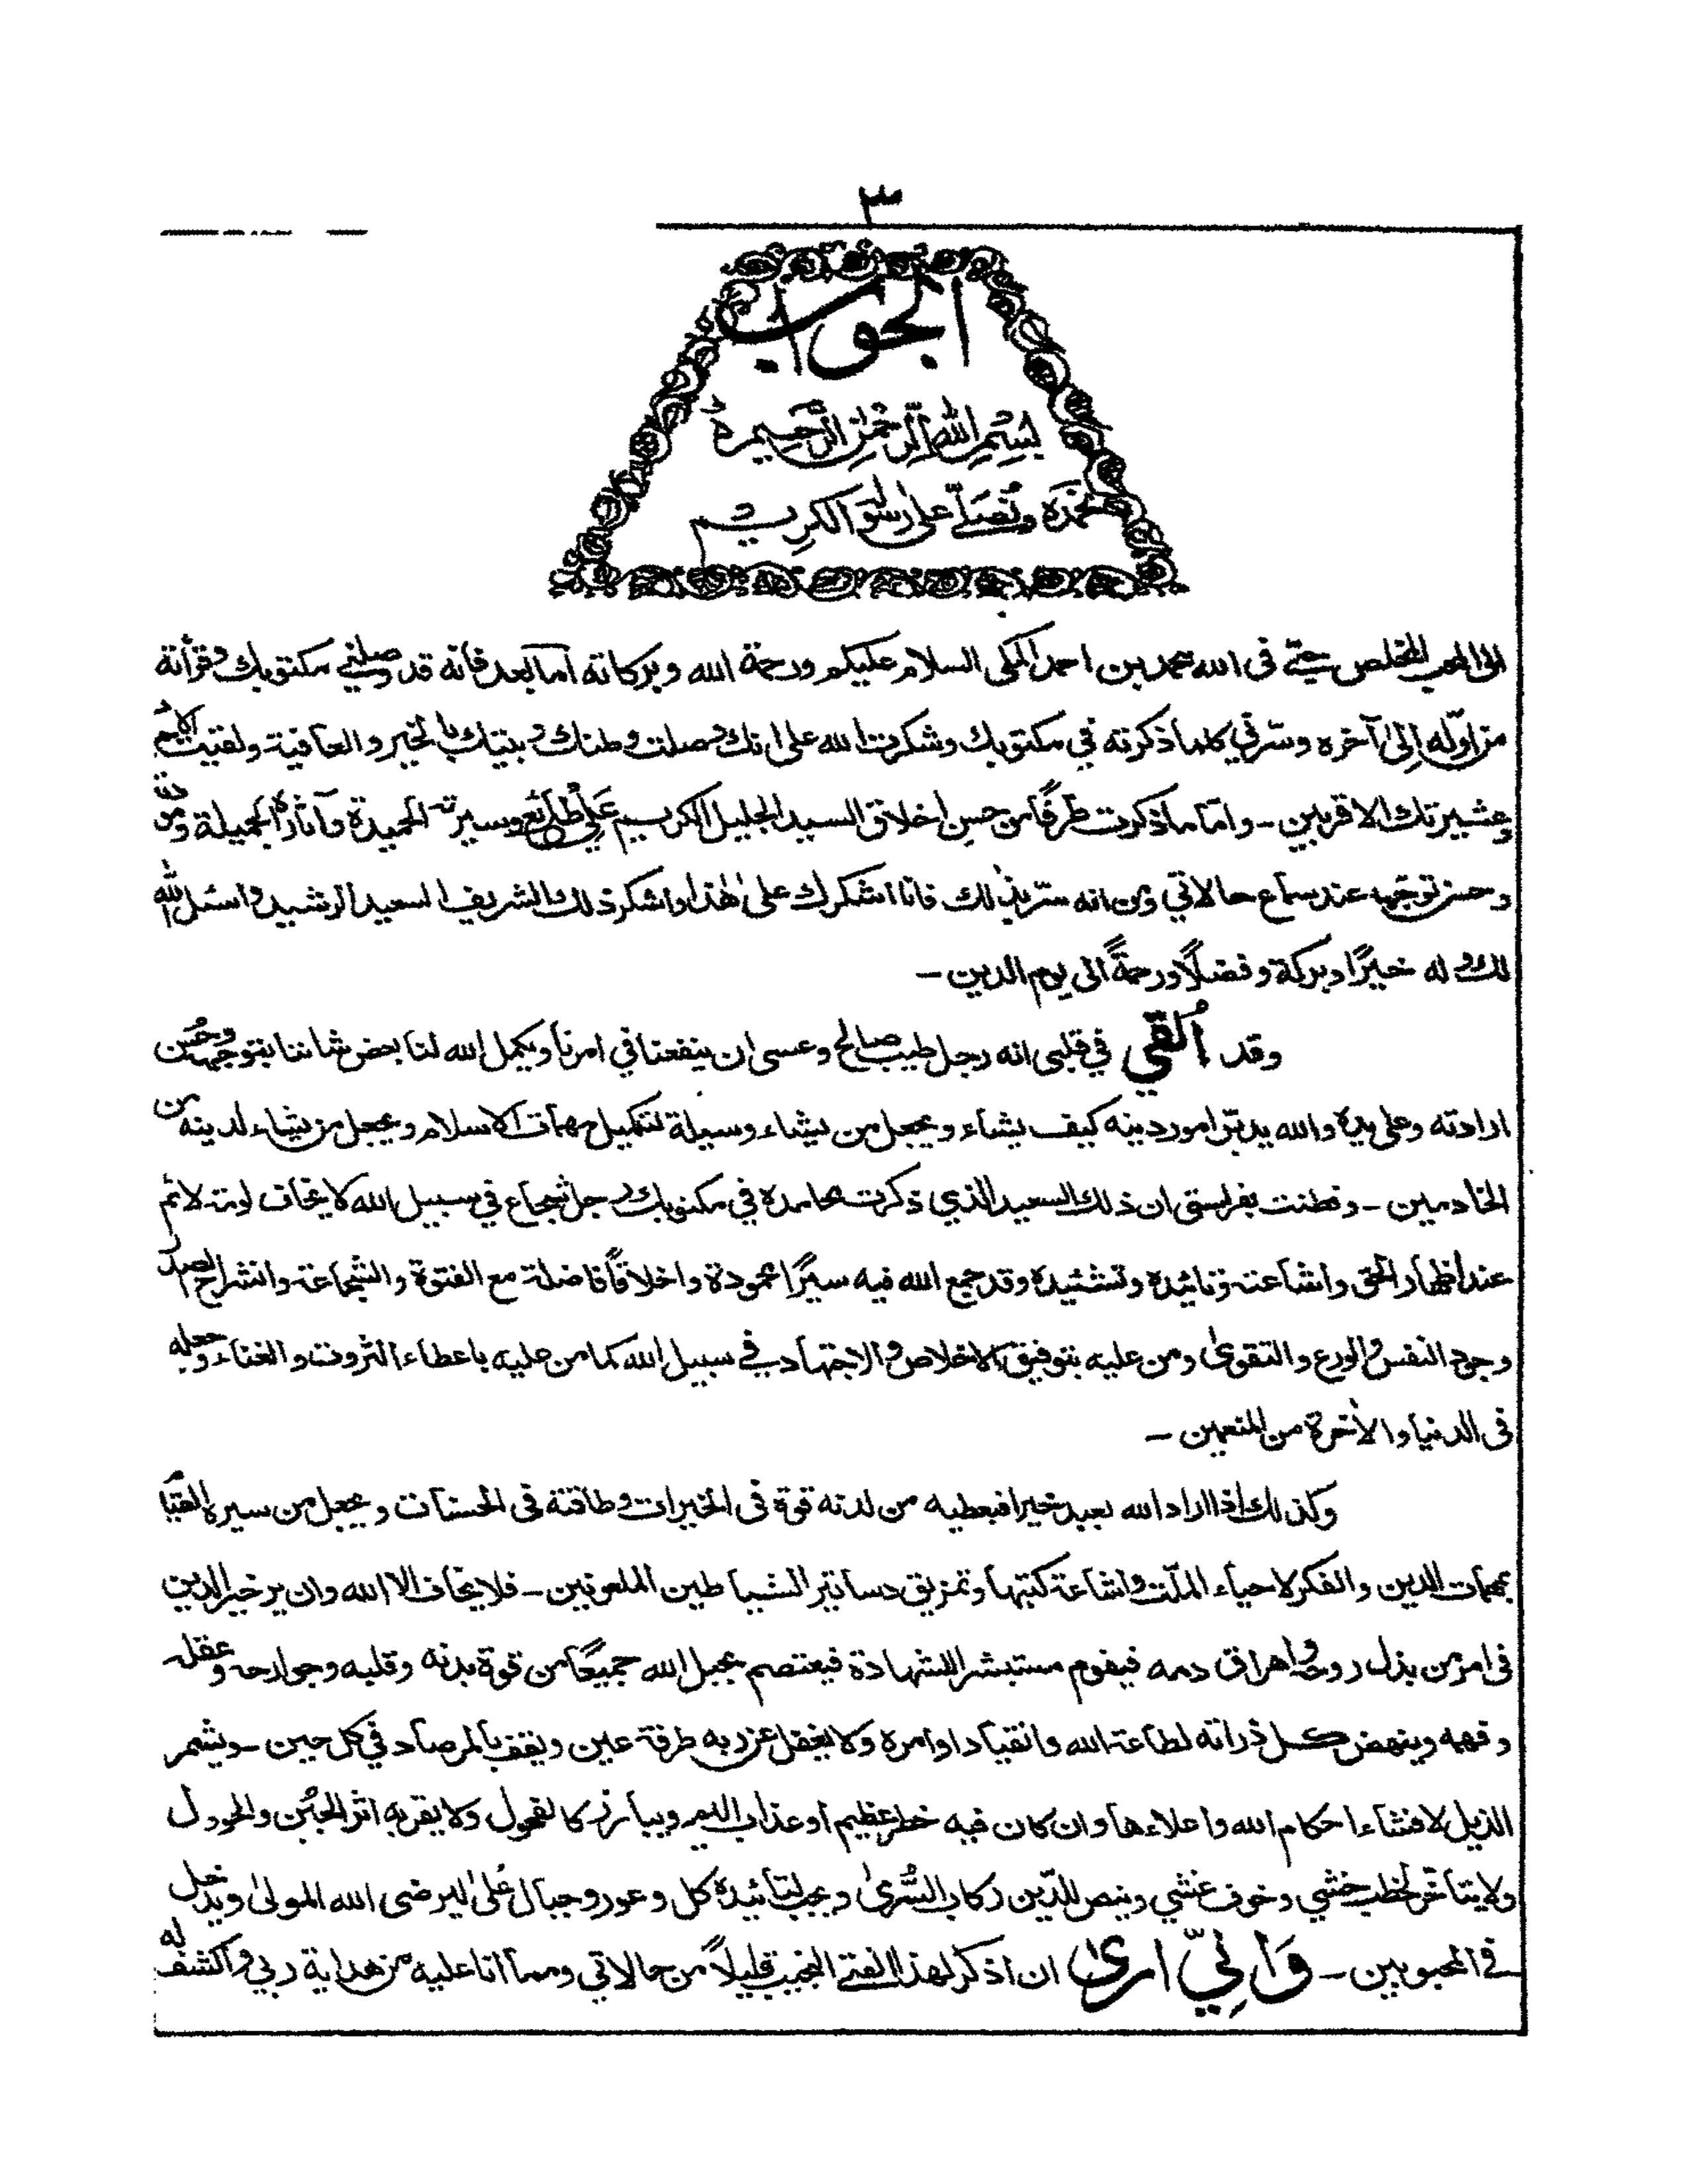 ٣
الجواب
بِسْمِ اللهِ الرَّحْمٰنِ الرَّحِيْمِ
نحمده ونصلّي على رسوله الكريم
الى المحب المخلص حِبّي فى الله محمد بن احمد المكى السلام عليكم ورحمة الله وبركاته اما بعد فانه قد وصلني مكتوبك وقرأته
من اوّله إلى آخره وسّرني كلما ذكرته في مكتوبك وشكرت الله على انك وصلت وطنك وبيتك بالخير والعافية ولقيت الاحبّ
وعشيرتك الاقربين - وامّا ما ذكرت طرفًا من حسن اخلاق السيد الجليل الكريم عَلِي طَايِع وسيرته الحميدة وآثاره الجميلة ومن
وحسن توجّهه عند سماع حالاتي ومن انه سرّ بذٰلك فانا اشكرك على هٰذا واشكر ذلك الشريف السعيد الرشيد واسئل الله
لك وله خيرًا وبركة وفضلًا ورحمةً الى يوم الدين -
وقد اُلقي في قلبى انه رجل طيب صالح وعسى ان ينفعنا في امرنا ويكمل الله لنا بعض شاننا بتوجهه وحُسن
ارادته وعلى يده والله يدبّر امور دينه كيف يشاء ويجعل من يشاء وسيلة لتكميل مهمات الاسلام ويجعل من يشاء لدينه من
الخادمين - وفطنت بفراستى ان ذلك السعيد الذي ذكرت محامده في مكتوبك رجل شجاع في سبيل الله لا يخاف لومة لائم
عند اظهار الحق واشاعته وتائيده وتشئيده وقد جمع الله فيه سيرًا محمودة واخلاقًا فاضلة مع الفتوة والشجاعة وانشراح الصدر
وجود النفس والورع والتقوىٰ ومن عليه بتوفيق الاخلاص والاجتهاد في سبيل الله كما من عليه باعطاء الثروت والغناء وجعله
فى الدنيا والأخرة من المنعمين -
وكذلك اذا اراد الله بعبد خيرا فيعطيه من لدنه قوة فى الخيرات وطاقة فى الحسنات ويجعل من سيره القيام
بمهمات الدين والفكر لاحياء الملّت واشاعة كتبها وتمزيق دساتير الشياطين الملعونين - فلا يخاف الا الله وان ير خير الدين
فى امر من بذل روحه واهراق دمه فيقوم مستبشرا للشهادة فيعتصم بحبل الله جميعًا من قوة بدنه وقلبه وجوارحه وعقله
وفهمه وينهض كل ذراته لطاعة الله وانقياد اوامره ولا يغفل عن ربه طرفة عين ويقف بالمرصاد في كل حين - ويشمر
الذيل لافشاء احكام الله واعلاءها وان كان فيه خطر عظيم او عذاب اليم ويبارز كالفحول ولا يقربه اثر الجبن والحوول
ولا يتأخر لخطب خشي وخوف غشي وينص للدّين ركاب السُّرىٰ ويجب لتائيده كل وعور وجبال عُلىٰ ليرضى الله المولىٰ ويدخل
في المحبوبين - وَاِنِّيْ ارىٰ ان اذكر لهذا الفتى النجيب قليلًا من حالاتي ومما انا عليه من هداية ربي واكشف له